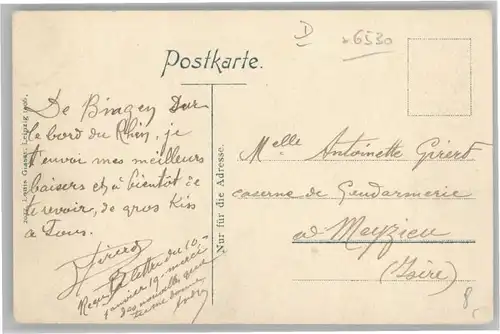 D
*6530
Postkarte.
De Bingen Sur
le bord du Rhin, je
t'envoi mes meilleurs
baisers et à bientôt de
te revoir, de gros Kiss
à Tous.
Girerd
Reçu ta lettre du 10
janvier 19. merci
des nouvelles que
tu me donne
Louis Glaser, Leipzig 1906.
Nur für die Adresse.
Melle Antoinette Girerd
caserne de Gendarmerie
à Meyzieu
(Isère)